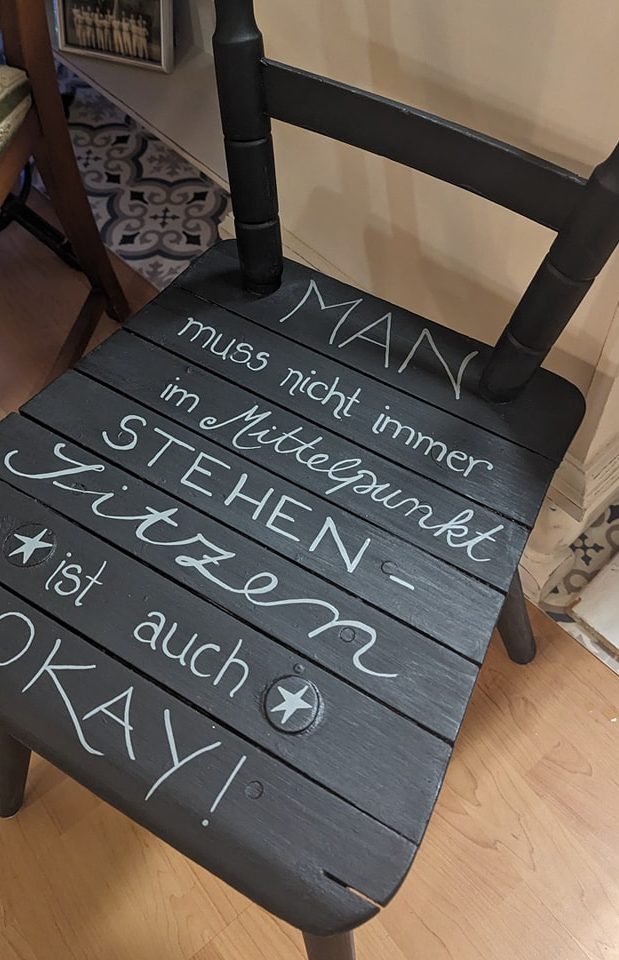 MAN
muss nicht immer
im Mittelpunkt
STEHEN -
Sitzen
ist auch
OKAY!